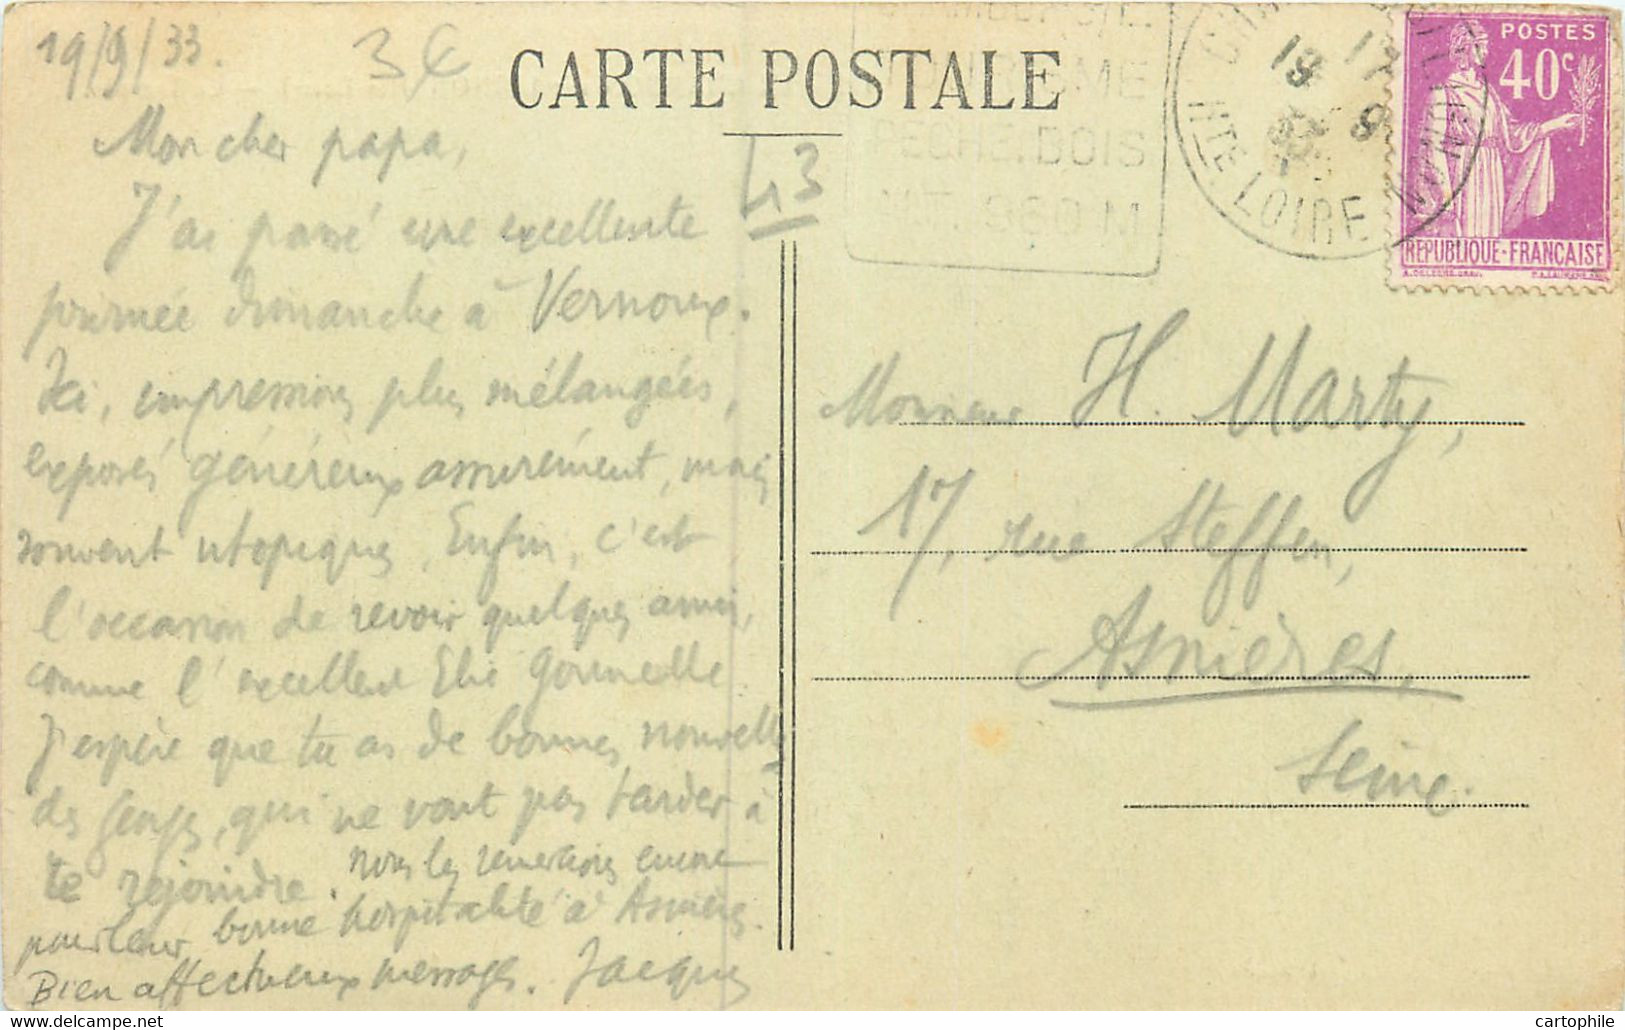 19/9/33.
3€
CARTE POSTALE
43
Mon cher papa,
J'ai passé une excellente
journée dimanche à Vernoux.
Ici, impressions plus mélangées,
exposés généreux assurément, mais
souvent utopiques. Enfin, c'est
l'occasion de revoir quelques amis,
comme l'excellent Elie Gounelle.
J'espère que tu as de bonnes nouvelles
des Georges, qui ne vont pas tarder à
te rejoindre. Nous les remercions encore
pour leur bonne hospitalité à Asnières.
Bien affectueux messages. Jacques
TOURISME
PECHE. BOIS
ALT. 960 M
19 17
9
33
HTE LOIRE
POSTES
40c
REPUBLIQUE-FRANCAISE
Monsieur H. Marty,
17, rue Steffen,
Asnières,
Seine.
cartophile.com